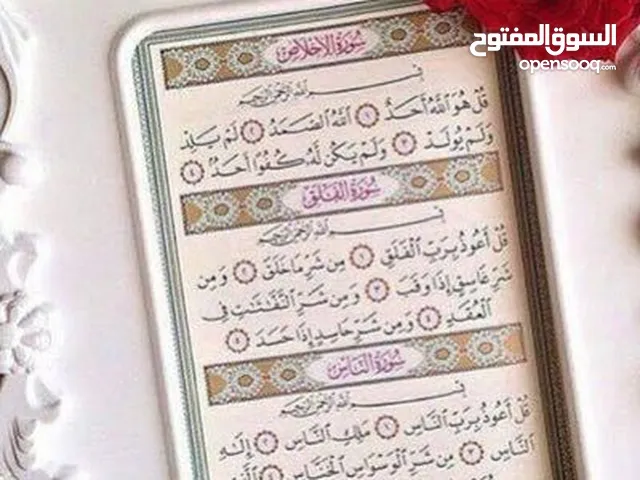 السوق المفتوح
opensooq.com
سُورَةُ الإِخْلَاصِ
بِسْمِ اللَّهِ الرَّحْمَٰنِ الرَّحِيمِ
قُلْ هُوَ اللَّهُ أَحَدٌ ١ اللَّهُ الصَّمَدُ ٢ لَمْ يَلِدْ
وَلَمْ يُولَدْ ٣ وَلَمْ يَكُن لَّهُ كُفُوًا أَحَدٌ ٤
سُورَةُ الفَلَقِ
بِسْمِ اللَّهِ الرَّحْمَٰنِ الرَّحِيمِ
قُلْ أَعُوذُ بِرَبِّ الْفَلَقِ ١ مِن شَرِّ مَا خَلَقَ ٢ وَمِن
شَرِّ غَاسِقٍ إِذَا وَقَبَ ٣ وَمِن شَرِّ النَّفَّٰثَٰتِ فِي
الْعُقَدِ ٤ وَمِن شَرِّ حَاسِدٍ إِذَا حَسَدَ ٥
سُورَةُ النَّاسِ
بِسْمِ اللَّهِ الرَّحْمَٰنِ الرَّحِيمِ
قُلْ أَعُوذُ بِرَبِّ النَّاسِ ١ مَلِكِ النَّاسِ ٢ إِلَٰهِ
النَّاسِ ٣ مِن شَرِّ الْوَسْوَاسِ الْخَنَّاسِ ٤